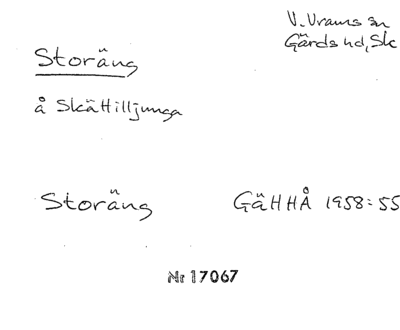 V. Vrams sn
Gärds hd, Sk
Storäng
å Skättilljunga
Storäng GäHHÅ 1958:55
Nr 17067